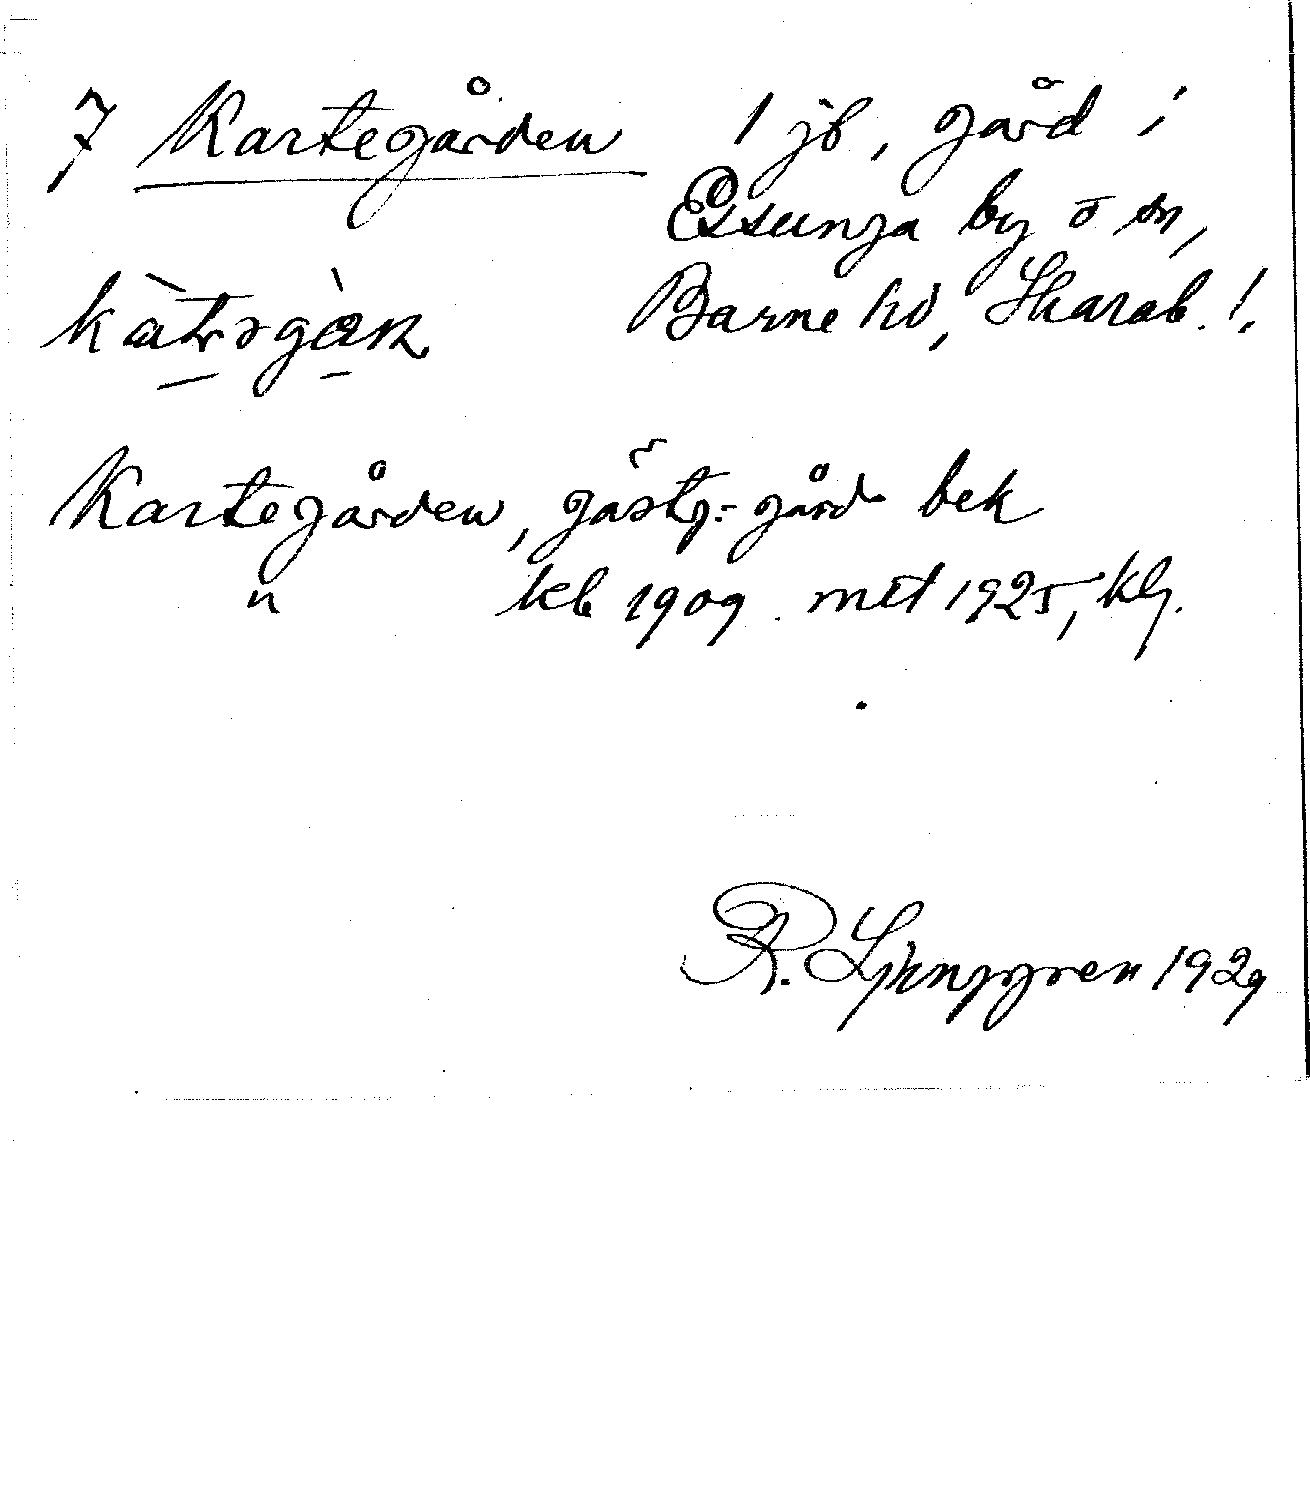 7 Kartegården 1 jb, gård i
Essunga by o sn,
Barne hd, Skarab. l.
kàtəgàn
Kartegården, gästg:- gård bek
" kb 1909. mtl 1925, klg.
R. Ljunggren 1929